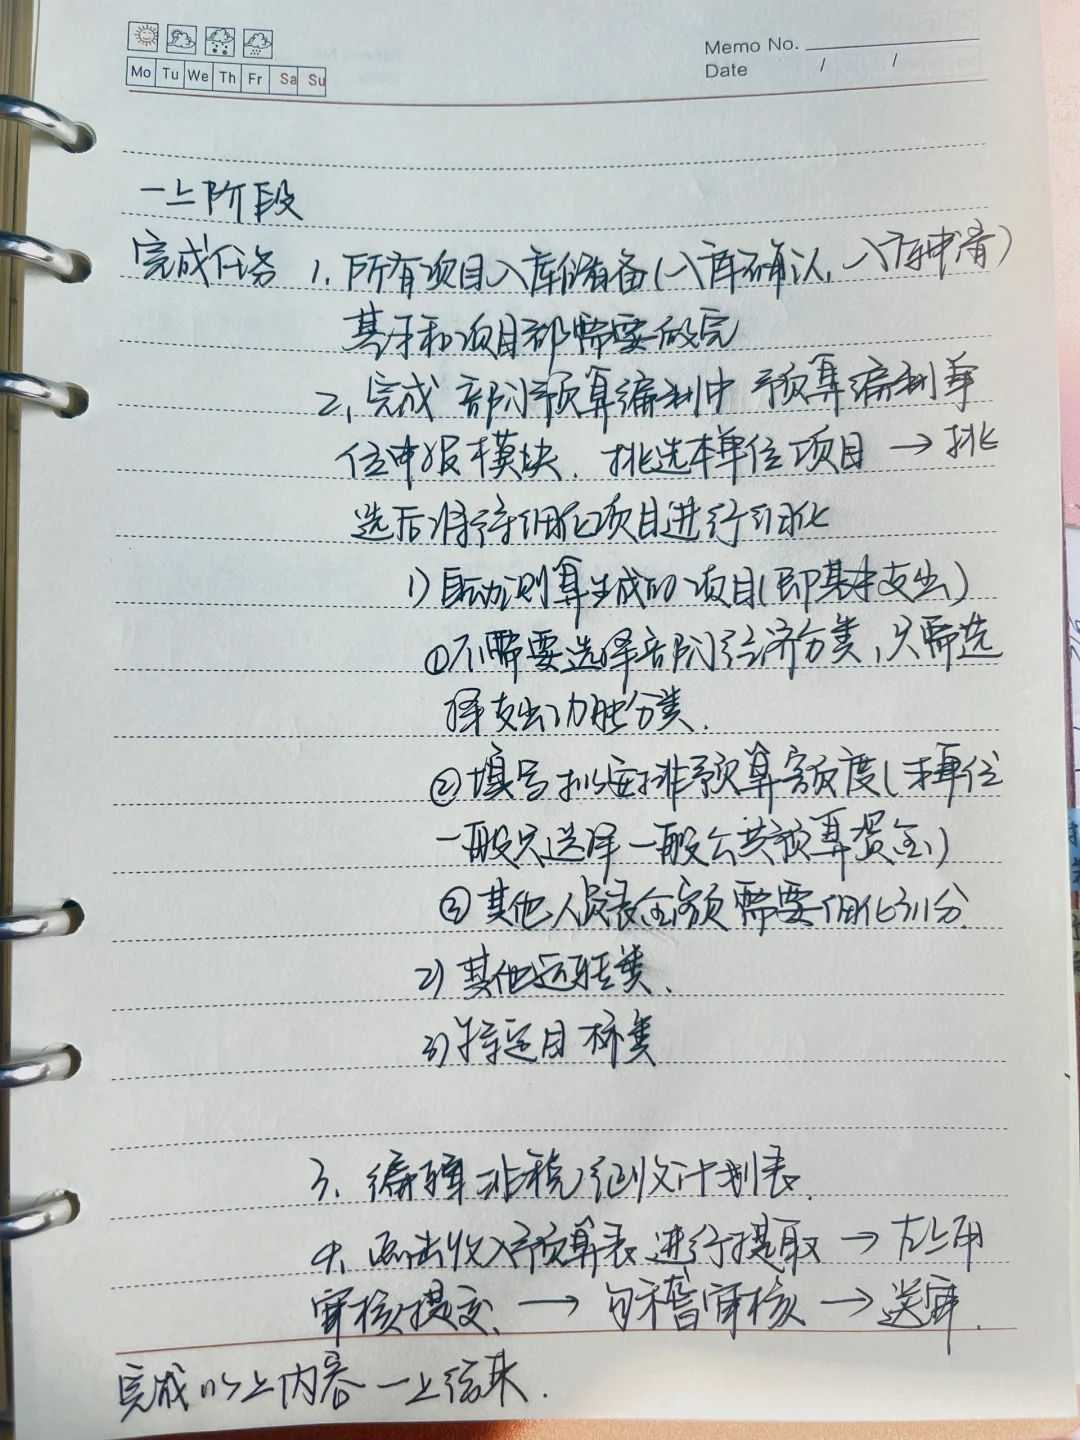 Memo No.
Mo Tu We Th Fr Sa Su
Date / /
一上阶段
完成任务 1. 所有项目入库储备(入库确认, 入库申请)
基本和项目都需要做完
2、完成 部门预算编制中 预算编制单
位申报模块. 挑选本单位项目 → 挑
选后将待细化项目进行细化
1) 自动测算生成的项目(即基本支出)
①不需要选择部门经济分类,只需选
择支出功能分类.
②填写拟安排预算额度(本单位
一般只选择一般公共预算资金)
③其他人员表金额需要细化引分.
2) 其他运转类、
3) 特定目标类
3、编辑非税征收计划表.
4、点击收入预算表进行提取 → 左上角
审核提交、→ 勾稽审核 → 送审.
完成以上内容 一上结束.